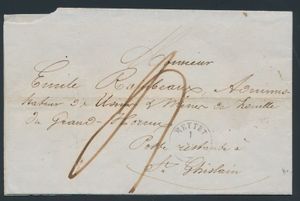 Monsieur
Emile Rambeaux, Adminis
trateur de Usines & Mines de houille
du Grand-Hornu
Poste restante à
St. Ghislain
METTET